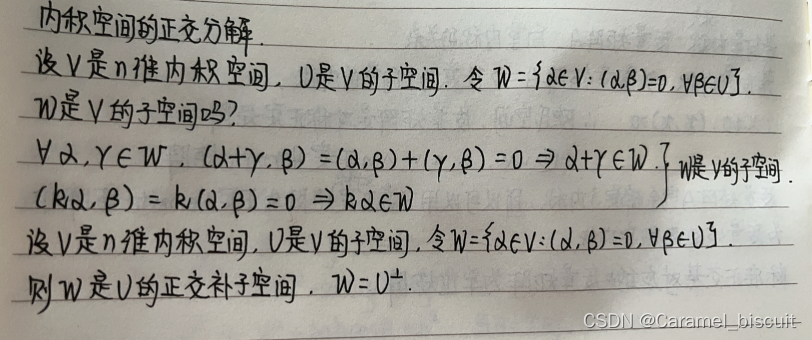 内积空间的正交分解.
设V是n维内积空间, U是V的子空间. 令 W={α∈V:(α,β)=0,∀β∈U}.
W是V的子空间吗?
∀α,γ∈W, (α+γ,β)=(α,β)+(γ,β)=0⇒α+γ∈W. } W是V的子空间.
(kα,β)=k(α,β)=0⇒kα∈W
设V是n维内积空间, U是V的子空间, 令W={α∈V:(α,β)=0,∀β∈U}.
则W是U的正交补子空间. W=U⊥.
CSDN @Caramel_biscuit